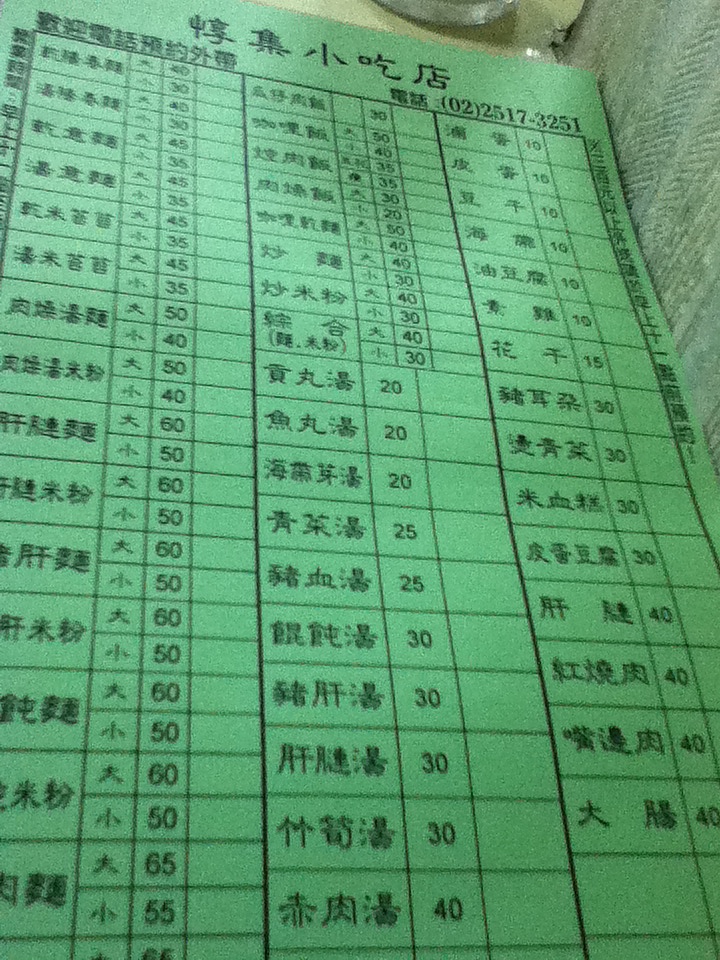 惇集小吃店
歡迎電話預約外帶
電話:(02)2517-3251
乾陽春麵 大 40
小 30
湯陽春麵 大 40
小 30
乾意麵 大 45
小 35
湯意麵 大 45
小 35
乾米苔苔 大 45
小 35
湯米苔苔 大 45
小 35
肉燥湯麵 大 50
小 40
肉燥湯米粉 大 50
小 40
肝膢麵 大 60
小 50
肝膢米粉 大 60
小 50
豬肝麵 大 60
小 50
肝米粉 大 60
小 50
飩麵 大 60
小 50
米粉 大 60
小 50
肉麵 大 65
小 55
大 65
瓜仔肉飯 30
咖哩飯 大 50
小 40
焢肉飯 35
35
肉燥飯 大 30
小 20
咖哩乾麵 大 50
小 40
炒麵 大 40
小 30
炒米粉 大 40
小 30
綜合(麵.米粉) 大 40
小 30
貢丸湯 20
魚丸湯 20
海帶芽湯 20
青菜湯 25
豬血湯 25
餛飩湯 30
豬肝湯 30
肝膢湯 30
竹筍湯 30
赤肉湯 40
滷蛋 10
皮蛋 10
豆干 10
海帶 10
油豆腐 10
素雞 10
花干 15
豬耳朵 30
燙青菜 30
米血糕 30
皮蛋豆腐 30
肝膢 40
紅燒肉 40
嘴邊肉 40
大腸 40